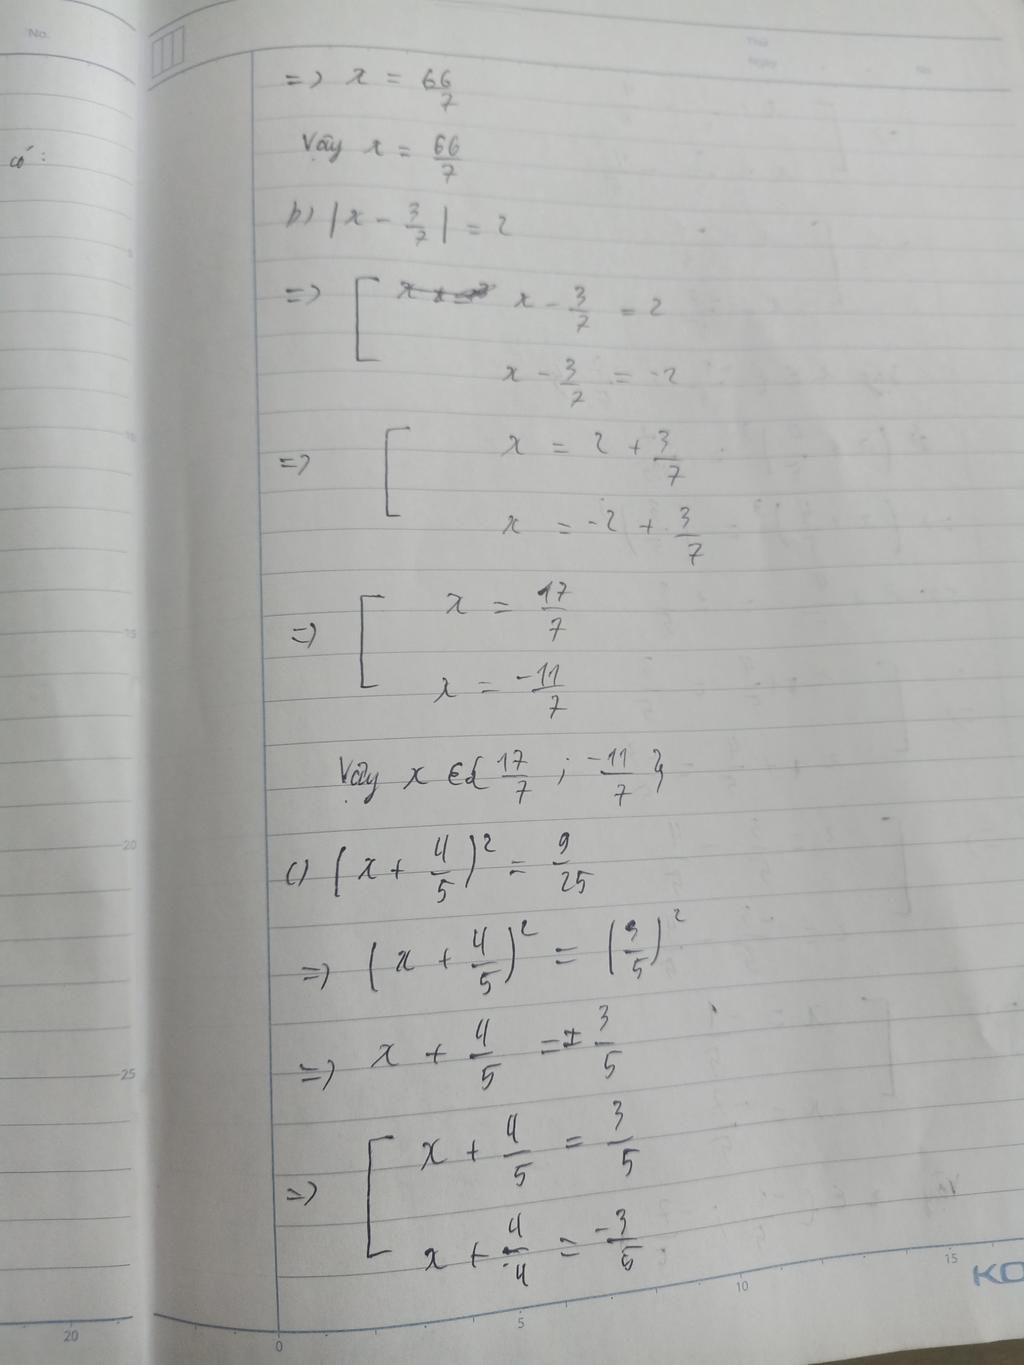 No.
có:
=> x = 66/7
Vậy x = 66/7
b) |x - 3/7| = 2
=> [ x - 3/7 = 2
x - 3/7 = -2
=> [ x = 2 + 3/7
x = -2 + 3/7
=> [ x = 17/7
x = -11/7
Vậy x ∈ { 17/7 ; -11/7 }
c) (x + 4/5)² = 9/25
=> (x + 4/5)² = (3/5)²
=> x + 4/5 = ± 3/5
=> [ x + 4/5 = 3/5
x + 4/4 = -3/5
20
25
20
0
5
10
15
KO